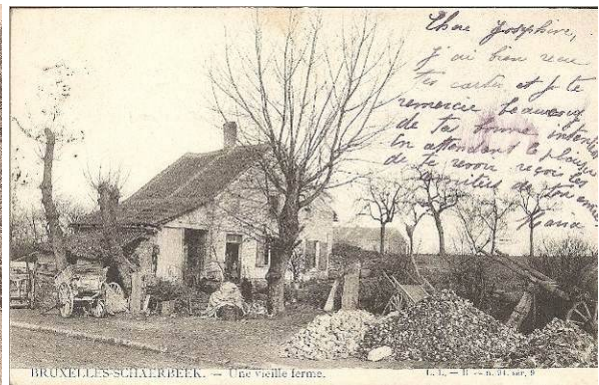 Chère Joséphine,
j'ai bien reçu
tes cartes et je te
remercie beaucoup
de ta bonne intention
En attendant le plaisir
de te revoir reçois les
amitiés de ton amie
Maria
BRUXELLES-SCHAERBEEK. — Une vieille ferme.
L. L. — B — n. 94, sér. 9